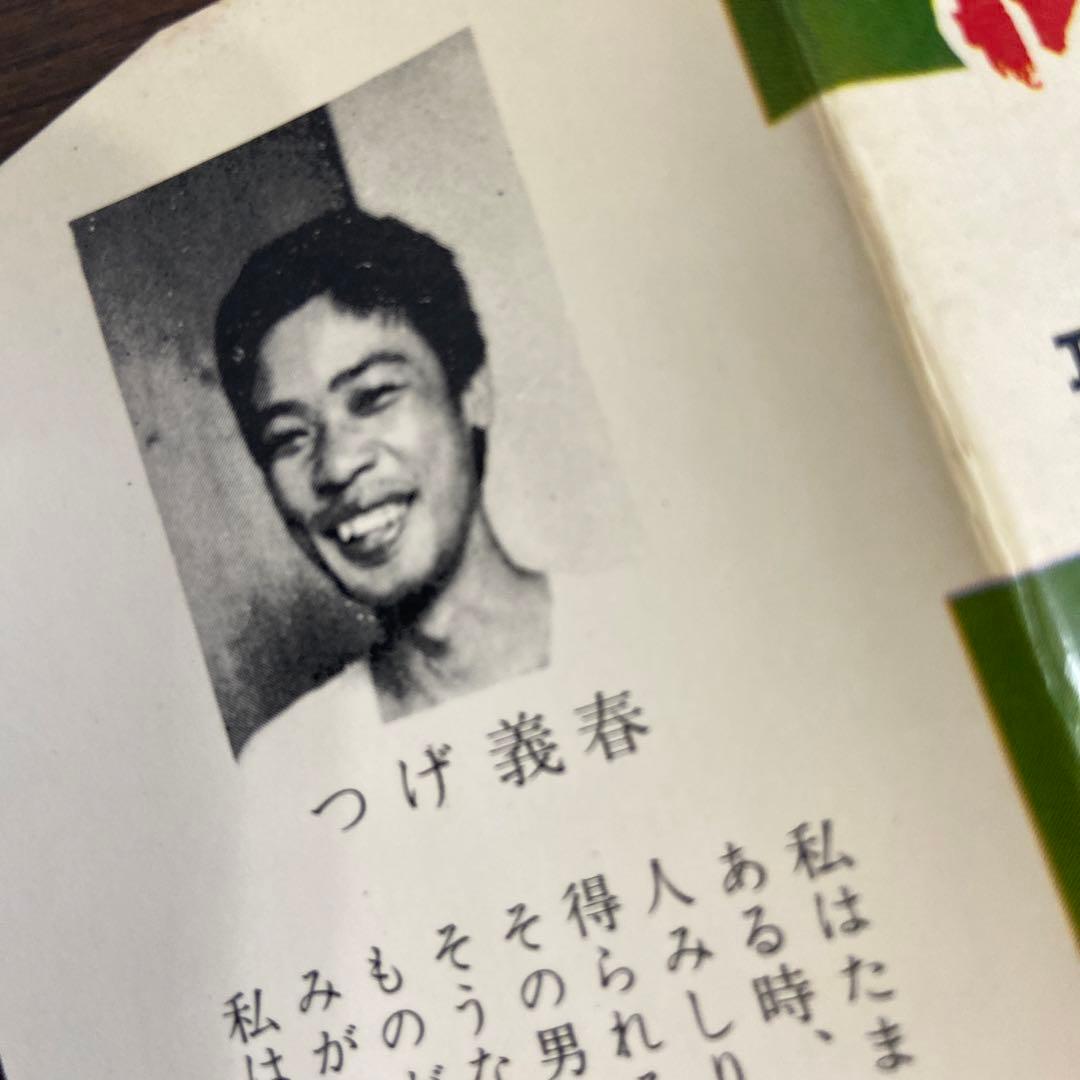 つげ義春
私はたま
ある時、
人みしり
得られ
その男
そうな
もの
みが
私は